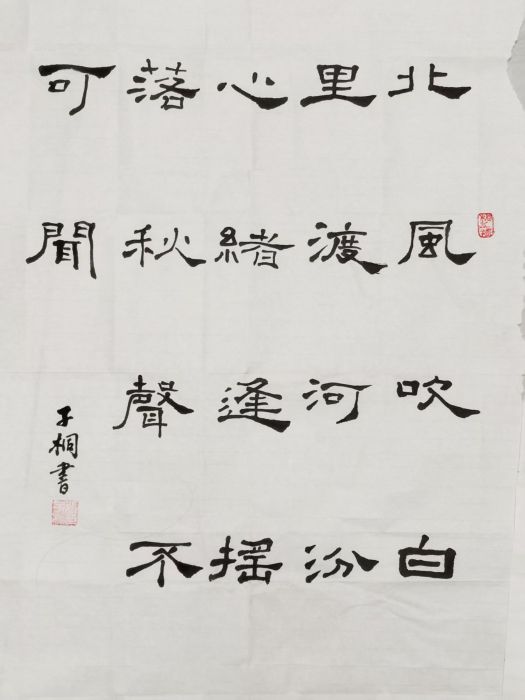 北風吹白
里渡河汾
心緒逢搖
落秋聲不
可聞
子桐書